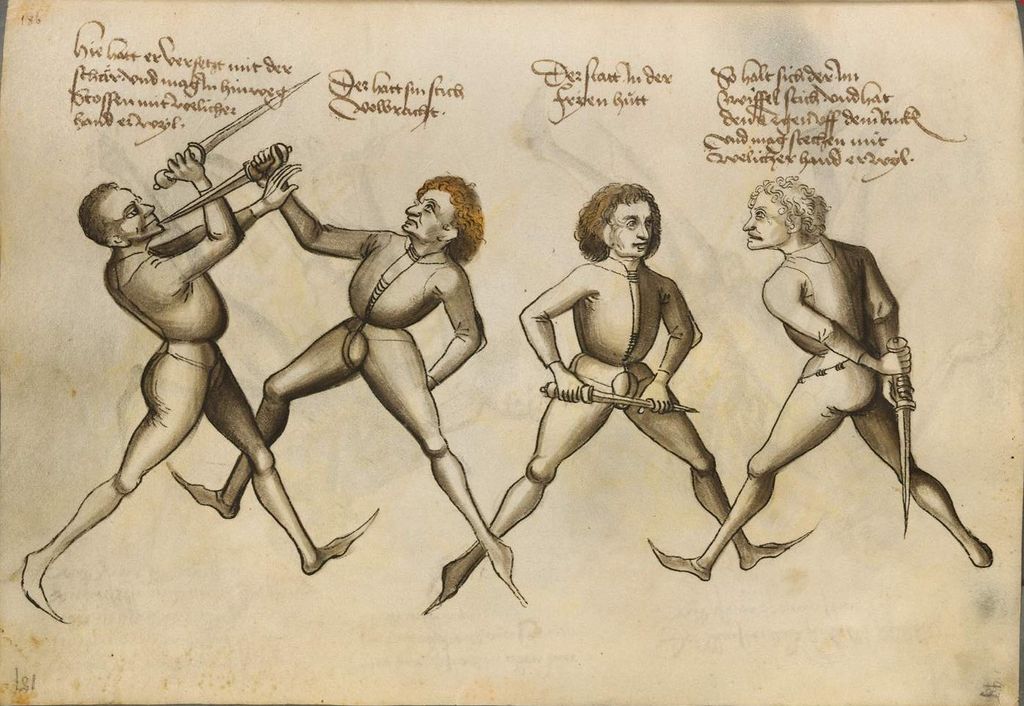 186
Hie hatt er versetzt mit der
schär und mag In hinweg
Stossen mit welicher
hand er wyl.
Der hatt sin stich
volbracht.
Der statt In der
fryen hůtt
So halt sich der Im
zwiffel stich und hat
den tegen uff dem Ruck
und mag stechen mit
welicher hand er wyl.
181